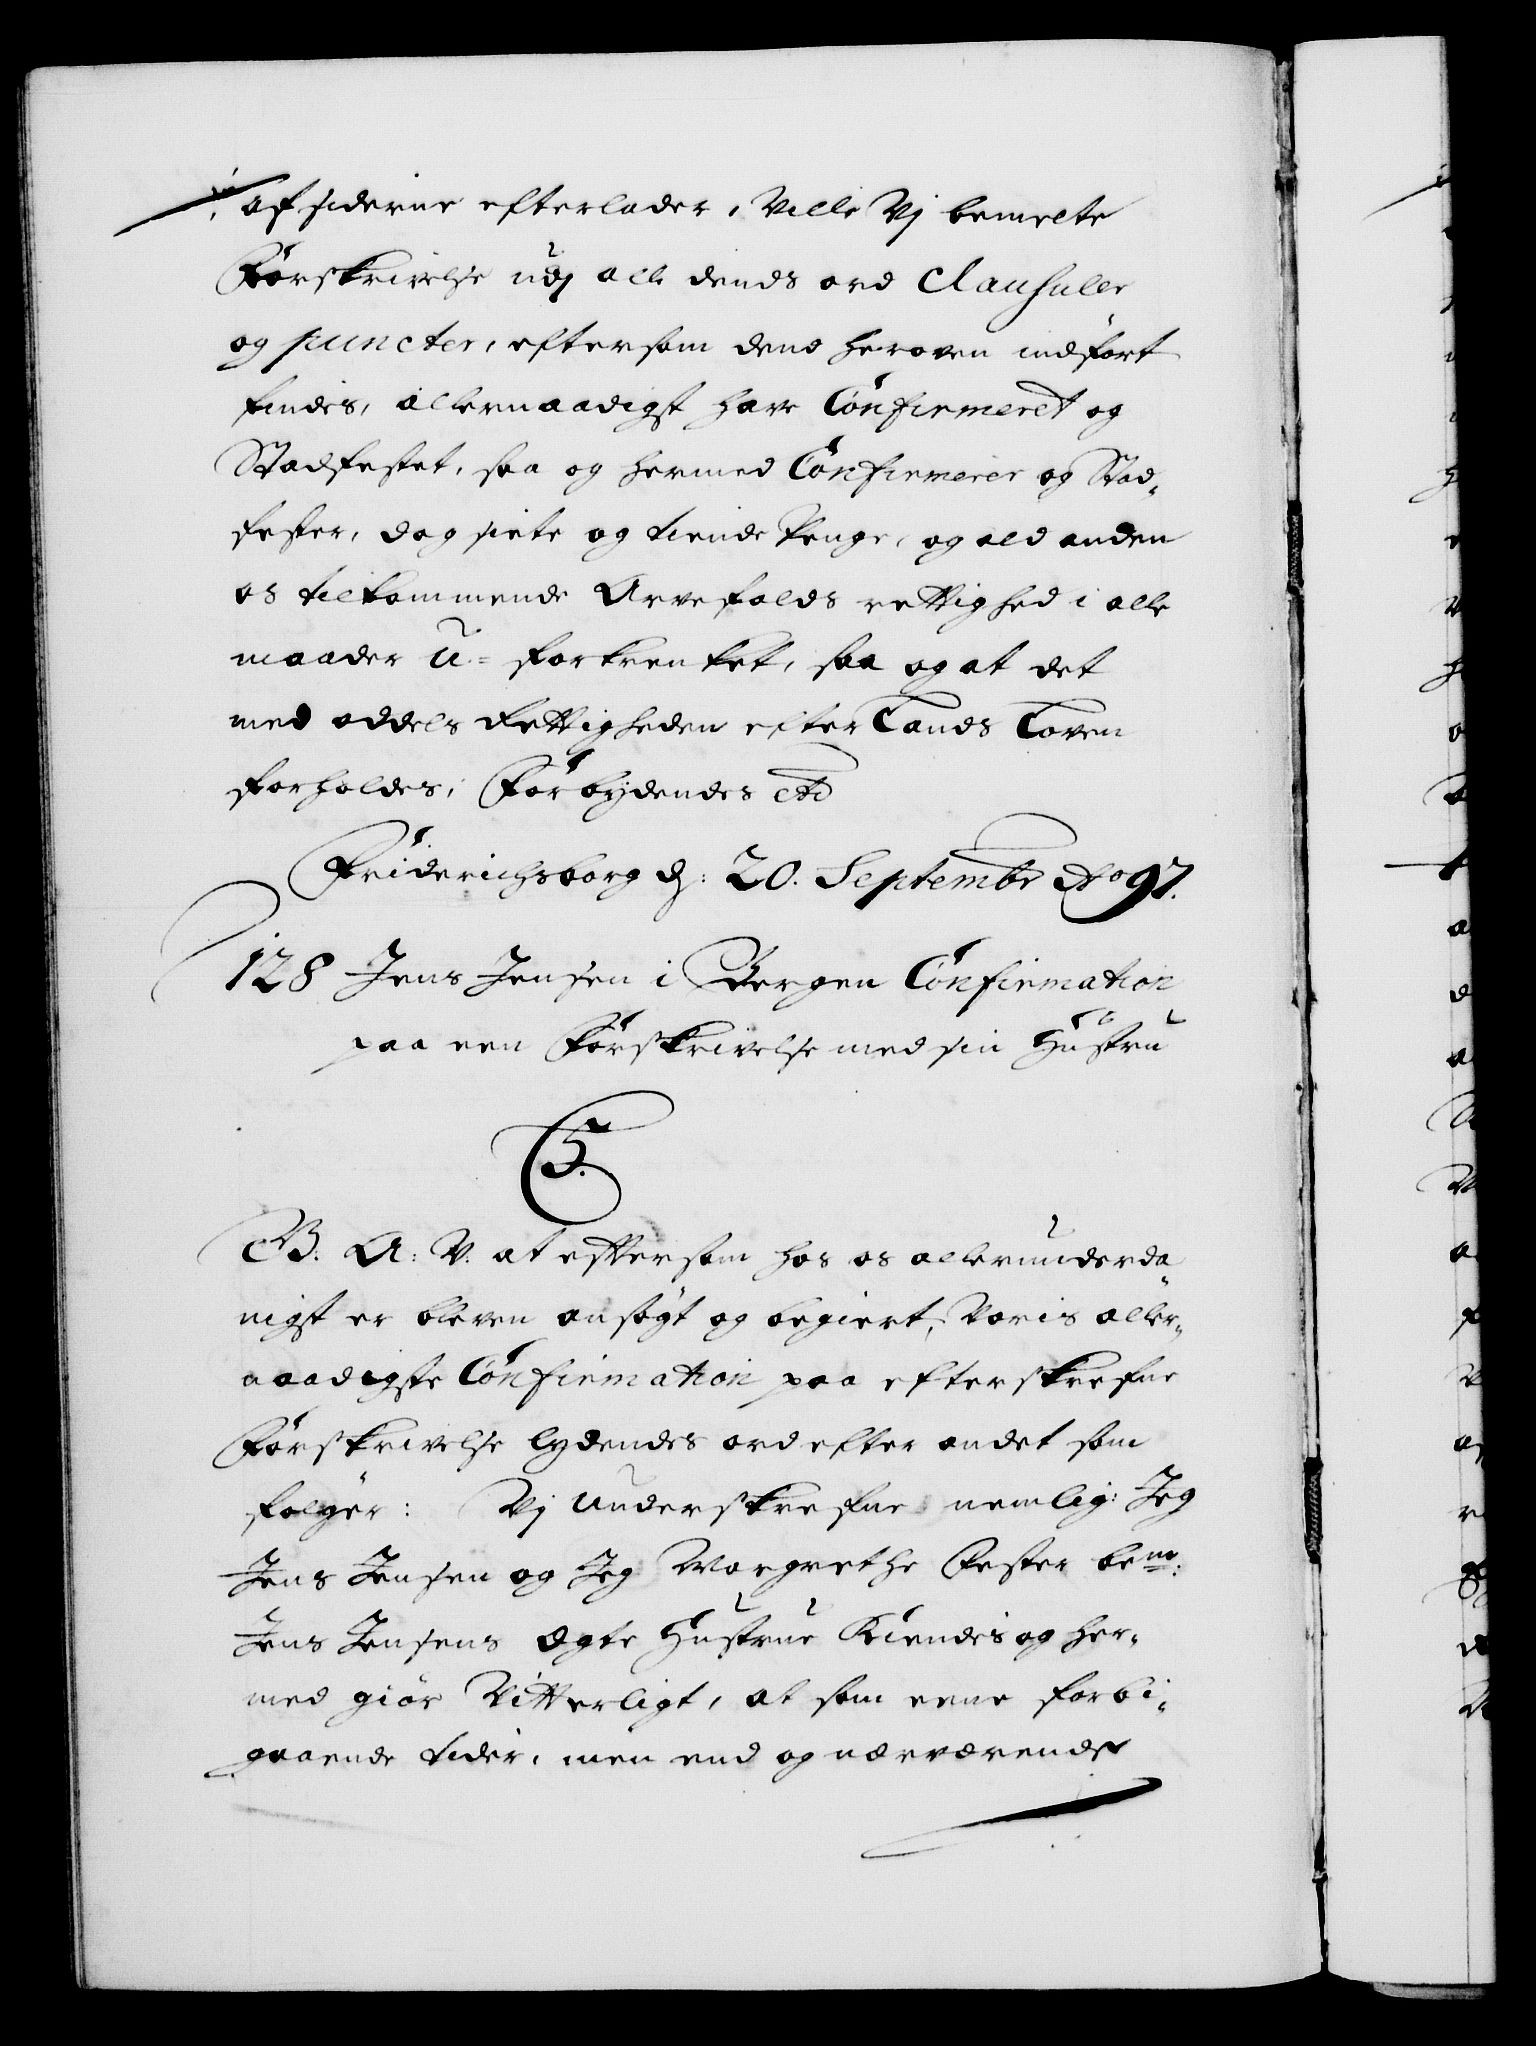 af siderne efterlader, Ville Vj bemelte
Forskrivelse udj alle dends ord Clausuler
og puncter, eftersom dend heroven indfört
findes, allernaadigst have Confirmeret og
Stadfestet, saa og hermed Confirmerer og Stad„
fester, dog siete og tiende Penge, og ald anden
os tilkommende Arvefalds rettighed i alle
maader U= forkrenket, saa og at det
med oddels Rettigheden efter Lands Loven
forholdes, Forbydendes etc
Friderichsborg d: 20. Septembr Ao 97.
128 Jens Jensen i Bergen Confirmation
paa een Forskrivelse med sin Hustru
C5.
G. A: V. at eftersom hos os allerunderda
nigst er bleven ansögt og begiert, Voris aller„
naadigste Confirmation paa efterskrefne
Forskrivelse lydendes ord efter andet som
fölger: Vj Underskrefne nemlig: Jeg
Jens Jensen og Jeg Margrethe Fester bem:
Jens Jensens Egte Hustrue Kiendis og her„
med giör Vitterligt, at som eene forbi„
gaaende tider, men end og nærværende